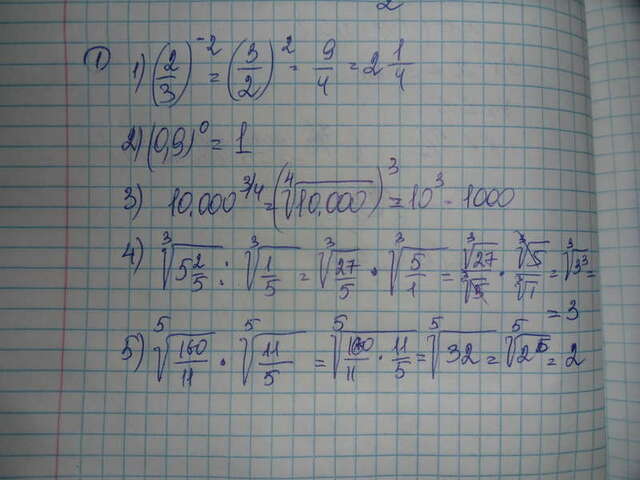 2
① 1) (2/3)^-2 = (3/2)^2 = 9/4 = 2 1/4
2) (0,9)^0 = 1
3) 10.000^3/4 = (∜10.000)^3 = 10^3 - 1000
4) ∛(5 2/5) : ∛(1/5) = ∛(27/5) · ∛(5/1) = ∛27/∛5 · ∛5/∛1 = ∛3^3 =
= 3
5) ⁵√(160/11) · ⁵√(11/5) = ⁵√(160/11 · 11/5) = ⁵√32 = ⁵√2^5 = 2